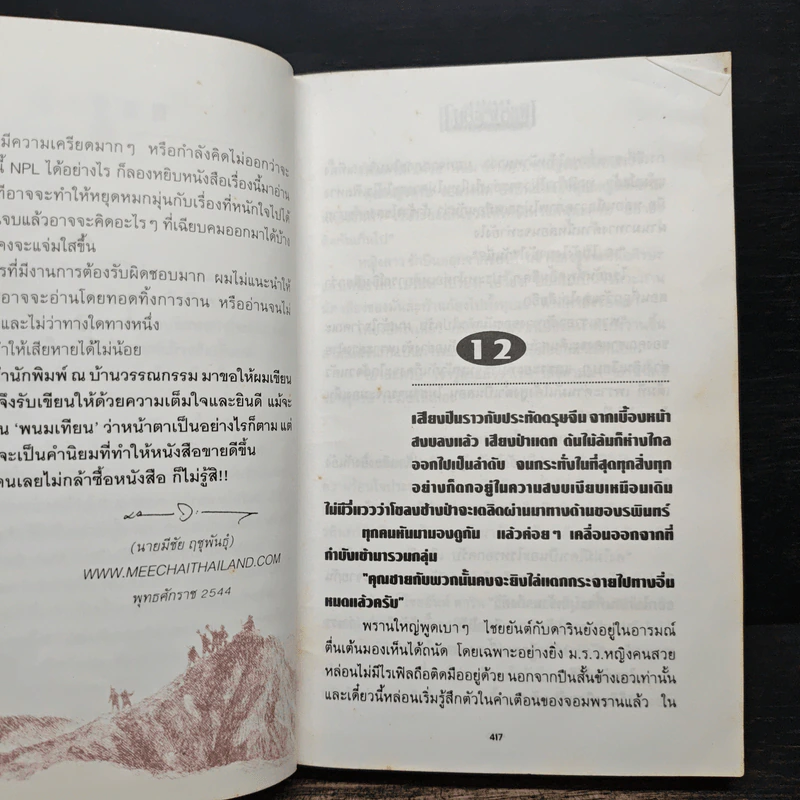 มีความเครียดมากๆ หรือกำลังคิดไม่ออกว่าจะ
NPL ได้อย่างไร ก็ลองหยิบหนังสือเรื่องนี้มาอ่าน
อาจจะทำให้หยุดหมกมุ่นกับเรื่องที่หนักใจไปได้
จบแล้วอาจจะคิดอะไรๆ ที่เฉียบคมออกมาได้บ้าง
คงจะแจ่มใสขึ้น
ที่มีงานการต้องรับผิดชอบมาก ผมไม่แนะนำให้
อาจจะอ่านโดยทอดทิ้งการงาน หรืออ่านจนไม่
และไม่ว่าทางใดทางหนึ่ง
ทำให้เสียหายได้ไม่น้อย
สำนักพิมพ์ ณ บ้านวรรณกรรม มาขอให้ผมเขียน
จึงรับเขียนให้ด้วยความเต็มใจและยินดี แม้จะ
'พนมเทียน' ว่าหน้าตาเป็นอย่างไรก็ตาม แต่
จะเป็นคำนิยมที่ทำให้หนังสือขายดีขึ้น
คนเลยไม่กล้าซื้อหนังสือ ก็ไม่รู้สิ!!
(นายมีชัย ฤชุพันธุ์)
WWW.MEECHAITHAILAND.COM
พุทธศักราช 2544
12
เสียงปืนราวกับประทัดตรุษจีน จากเบื้องหน้า
สงบลงแล้ว เสียงป่าแตก ต้นไม้ล้มก็ห่างไกล
ออกไปเป็นลำดับ จนกระทั่งในที่สุดทุกสิ่งทุก
อย่างก็ตกอยู่ในความสงบเงียบเหมือนเดิม
ไม่มีวี่แววว่าโขลงช้างป่าจะเตลิดผ่านมาทางด้านของรพินทร์
ทุกคนหันมามองดูกัน แล้วค่อยๆ เคลื่อนออกจากที่
กำบังเข้ามารวมกลุ่ม
"คุณชายกับพวกนั้นคงจะยิงไล่แตกกระจายไปทางอื่น
หมดแล้วครับ"
พรานใหญ่พูดเบาๆ ไชยยันต์กับดารินยังอยู่ในอารมณ์
ตื่นเต้นมองเห็นได้ถนัด โดยเฉพาะอย่างยิ่ง ม.ร.ว.หญิงคนสวย
หล่อนไม่มีไรเฟิลถือติดมืออยู่ด้วย นอกจากปืนสั้นข้างเอวเท่านั้น
และเดี๋ยวนี้หล่อนเริ่มรู้สึกตัวในคำเตือนของจอมพรานแล้ว ใน
417